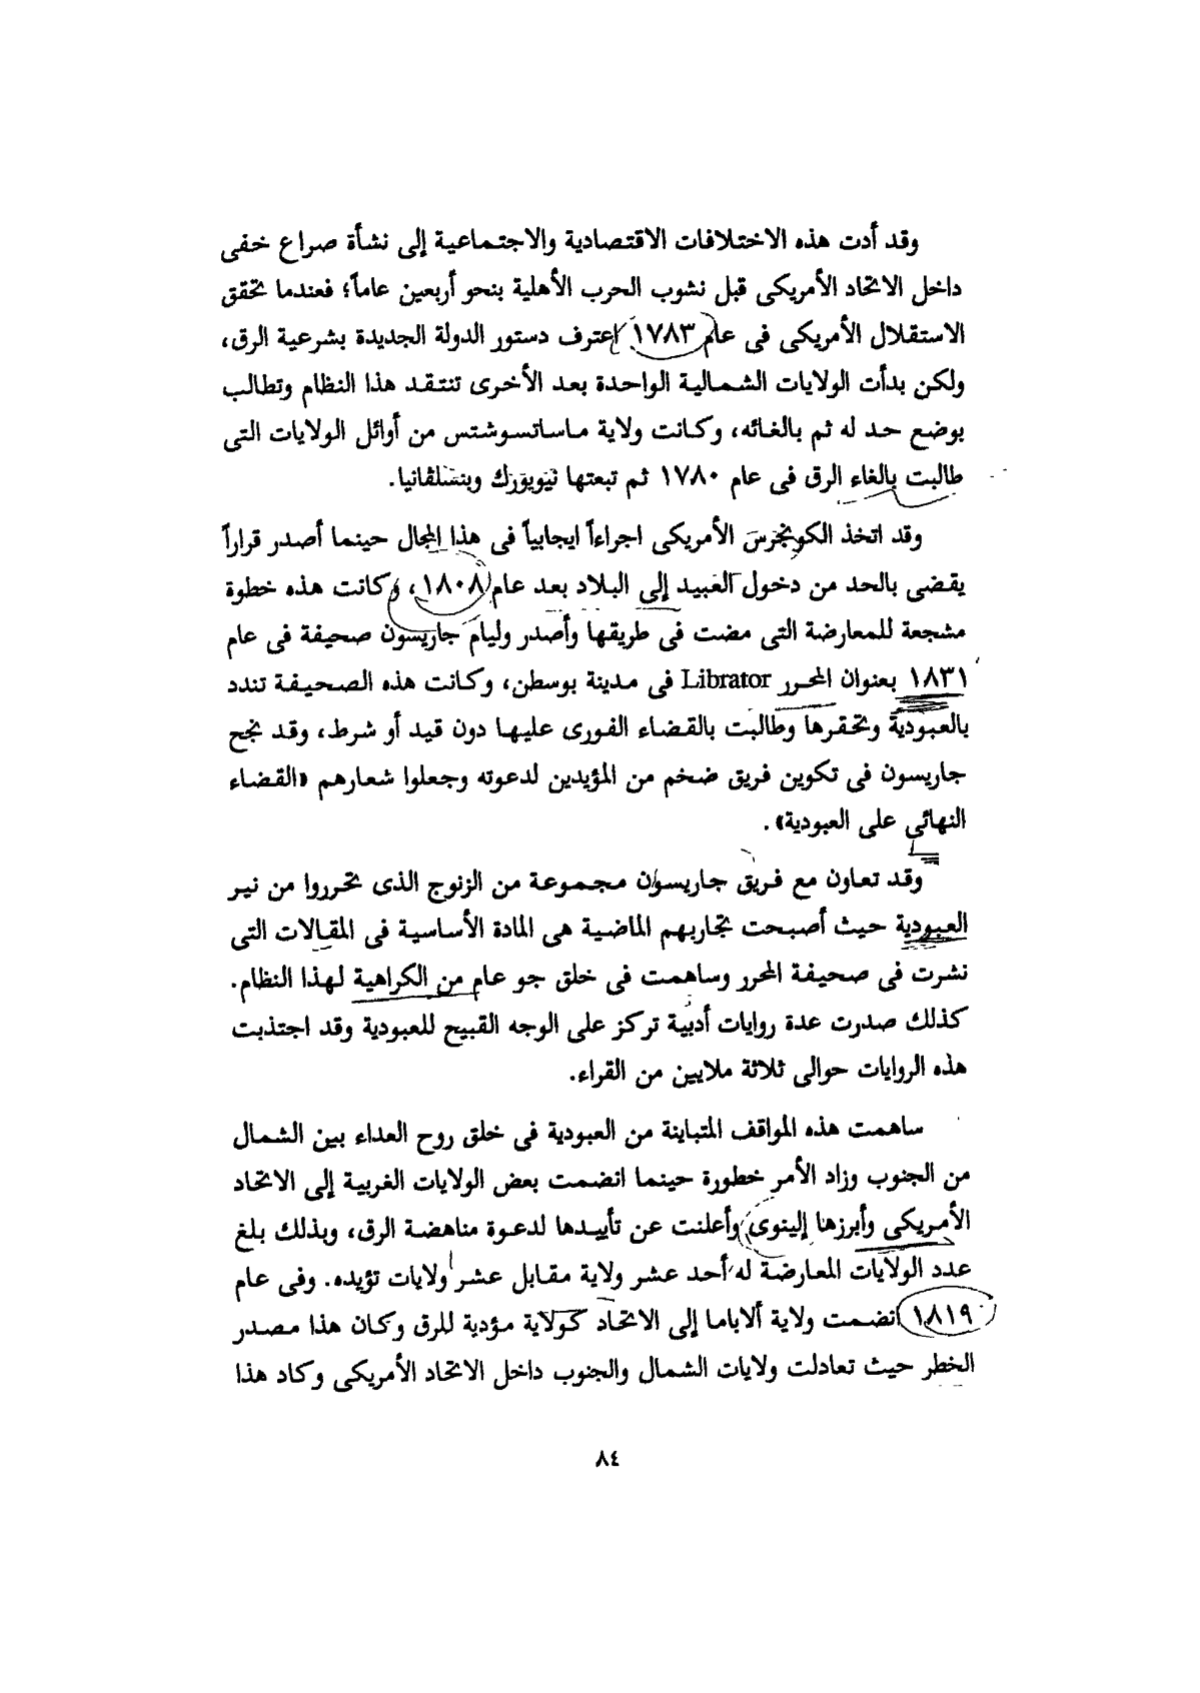 وقد أدت هذه الاختلافات الاقتصادية والاجتماعية إلى نشأة صراع خفى
داخل الاتحاد الأمريكى قبل نشوب الحرب الأهلية بنحو أربعين عاماً؛ فعندما تحقق
الاستقلال الأمريكى فى عام ١٧٨٣ اعترف دستور الدولة الجديدة بشرعية الرق،
ولكن بدأت الولايات الشمالية الواحدة بعد الأخرى تنتقد هذا النظام وتطالب
بوضع حد له ثم بالغائه، وكانت ولاية ماساتسوشتس من أوائل الولايات التى
طالبت بالغاء الرق فى عام ١٧٨٠ ثم تبعتها نيويورك وبنسلفانيا.
وقد اتخذ الكونجرس الأمريكى اجراءاً ايجابياً فى هذا المجال حينما أصدر قراراً
يقضى بالحد من دخول العبيد إلى البلاد بعد عام ١٨٠٨، وكانت هذه خطوة
مشجعة للمعارضة التى مضت فى طريقها وأصدر وليام جاريسون صحيفة فى عام
١٨٣١ بعنوان المحرر Librator فى مدينة بوسطن، وكانت هذه الصحيفة تندد
بالعبودية وتحقرها وطالبت بالقضاء الفورى عليها دون قيد أو شرط، وقد نجح
جاريسون فى تكوين فريق ضخم من المؤيدين لدعوته وجعلوا شعارهم «القضاء
النهائى على العبودية».
وقد تعاون مع فريق جاريسون مجموعة من الزنوج الذى تحرروا من نير
العبودية حيث أصبحت تجاربهم الماضية هى المادة الأساسية فى المقالات التى
نشرت فى صحيفة المحرر وساهمت فى خلق جو عام من الكراهية لهذا النظام.
كذلك صدرت عدة روايات أدبية تركز على الوجه القبيح للعبودية وقد اجتذبت
هذه الروايات حوالى ثلاثة ملايين من القراء.
ساهمت هذه المواقف المتباينة من العبودية فى خلق روح العداء بين الشمال
من الجنوب وزاد الأمر خطورة حينما انضمت بعض الولايات الغربية إلى الاتحاد
الأمريكى وأبرزها إلينوى وأعلنت عن تأييدها لدعوة مناهضة الرق، وبذلك بلغ
عدد الولايات المعارضة له أحد عشر ولاية مقابل عشر ولايات تؤيده. وفى عام
١٨١٩ انضمت ولاية ألاباما إلى الاتحاد كولاية مؤدية للرق وكان هذا مصدر
الخطر حيث تعادلت ولايات الشمال والجنوب داخل الاتحاد الأمريكى وكاد هذا
٨٤